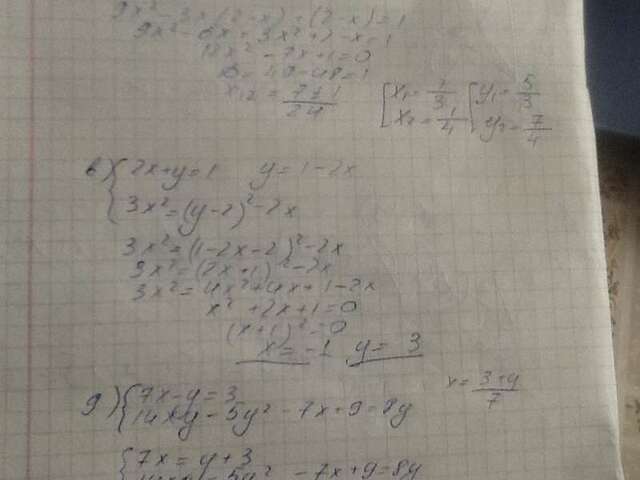 9x² - 3x(2-x) + (2-x) = 1
9x² - 6x + 3x² + 2 - x = 1
12x² - 7x + 1 = 0
D = 49 - 48 = 1
x₁,₂ = 7±1/24
[x₁ = 1/3 [y₁ = 5/3
x₂ = 1/4 y₂ = 7/4
в) {2x+y=1 y = 1-2x
3x² = (y-2)² - 2x
3x² = (1-2x-2)² - 2x
3x² = (2x+1)² - 2x
3x² = 4x² + 4x + 1 - 2x
x² + 2x + 1 = 0
(x+1)² = 0
x = -1 y = 3
g) {7x-y=3 x = 3+y/7
14xy - 5y² - 7x + 9 = 8y
{7x = y+3
14xy - 5y² - 7x + 9 = 8y